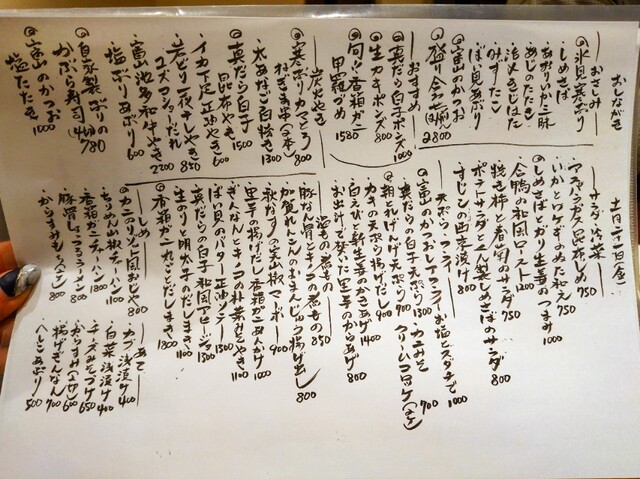 おしながき
おさしみ
氷見寒ぶり
しめさば
あおりいか三昧
あじのたたき
活〆きじはた
みずたこ
ばい貝あぶり
富山のかつお
盛り合わせ 2800
おすすめ
真だら白子ポンズ 1000
生カキポンズ 800
旬!!香箱ガニ
甲羅づめ 1580
炭火やき
寒ぶりカマとろ 800
ねぎま串(2本)
太あなご白焼き 1300
真だら白子
昆布やき 1500
イカ下足正油やき 600
岩どり一夜干しやき 850
ユズコショーだれ
富山池多和牛やき 2200
塩ぶりあぶり 600
自家製ぶりの
かぶら寿司(4切) 780
富山のかつお
塩たたき 1000
十一月二十一日(金)
サラダ・冷菜
アオリイカ昆布じめ 750
いかとワケギのぬた和え 750
しめさばとガリ生姜のつまみ 1000
合鴨の和風ロースト 1200
焼き柿と春菊のサラダ 750
ポテトサラダとくん製しめさばのサラダ 800
すじこの西京漬け 800
天ぷら・フライ
富山のかつおレアフライ お塩とスダチで 1000
真だらの白子天ぷら 1300
カニみそクリームコロッケ(2ケ) 700
朝れげんげ天ぷら 900
カキの天ぷら揚げだし 900
白えびと新生姜のかきあげ 1400
お出汁で炊いた里芋のからあげ 800
温もの・煮もの
豚なん骨とキノコの煮もの 850
加賀れんこんのおまんじゅう揚げ出し 800
秋なすの実山椒マーボー 900
里芋の揚げだし香箱ガニあんかけ 1000
ぎんなんとキノコの朴葉みそやき 1100
ばい貝のバター正油ソテー 1500
真だらの白子和風アヒージョ 1500
生のりと明太子のだしまき 1100
香箱ガニ丸ごとだしまき 1800
しめ
カニのリゾット風おじや 800
ちりめん山椒チャーハン 1100
香箱ガニチャーハン 1800
豚骨しょうゆラーメン 800
からすみもち(2ケ) 800
あて
カブ浅漬け 400
白菜浅漬け 400
チーズみそづけ 650
からすみ(2切) 600
揚げぎんなん 700
へしこあぶり 500